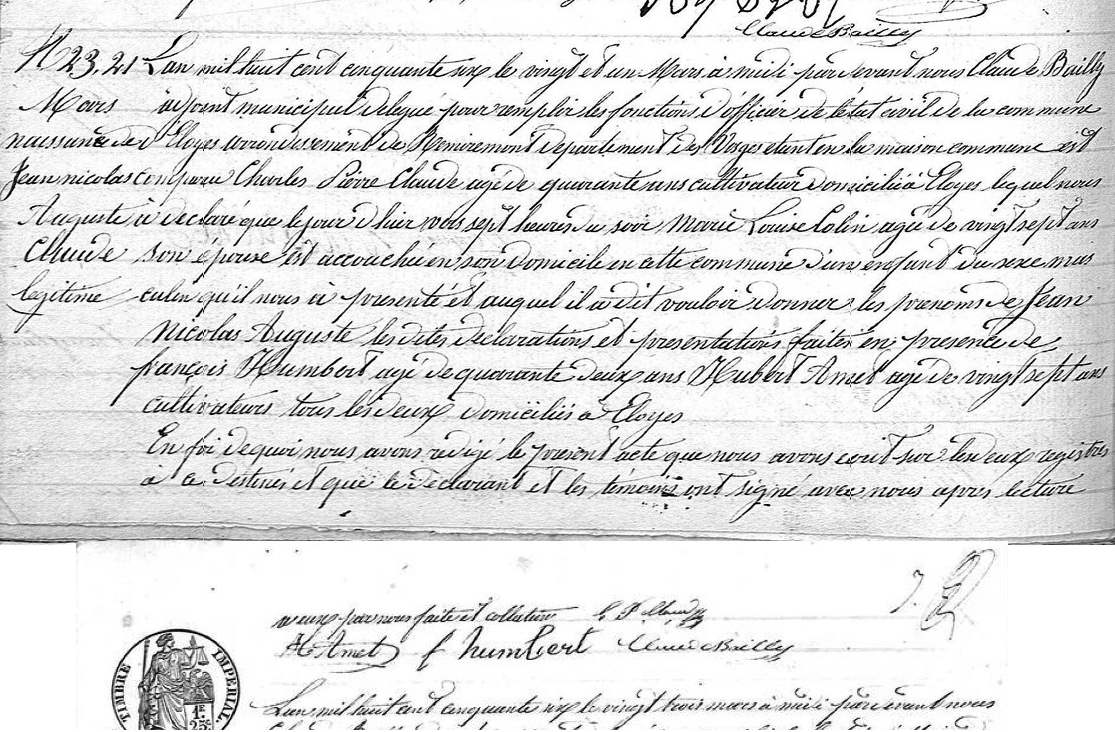 Claude Bailly
N 23. 21 Lan mil huit cent cinquante six le vingt et un Mars à midi pardevant nous Claude Bailly
Mars adjoint municipal delegué pour remplir les fonctions d'officier de l'état civil de la commune
naissance de d'Eloyes arrondissement de Remiremont departement des Vosges etant en la maison commune est
Jean nicolas comparu Charles Pierre Claude agé de quarante ans cultivateur domicilié à Eloyes lequel nous
Auguste à declaré que le jour d'hier vers sept heures du soir Marie Louise Colin agée de vingt sept ans
Claude son épouse est accouchée en son domicile en cette commune d'un enfant du sexe mas
legitime culin qu'il nous à presenté et auquel il a dit vouloir donner les prenoms de Jean
Nicolas Auguste les dites declarations et presentations faites en presence de
françois Humbert agé de quarante deux ans Hubert Amet agé de vingt sept ans
cultivateurs tous les deux domiciliés à Eloyes
En foi de quoi nous avons redigé le present acte que nous avons ecrit sur les deux registres
à ce destinés et que le declarant et les témoins ont signé avec nous après lecture
a eux par nous faite et collation C P Claude
H Amet f humbert Claude Bailly
TIMBRE IMPERIAL
1F.
25c
Lan mil huit cent cinquante six le vingt trois mars à midi pardevant nous